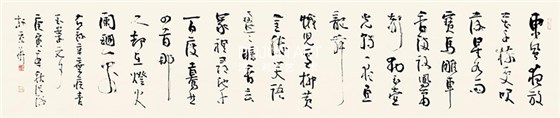 東風夜放
花千樹更吹
落星如雨
寶馬雕車
香滿路鳳簫
聲動玉壺
光轉一夜魚
龍舞
蛾兒雪柳黃
金縷笑語
盈盈暗香去
眾裡尋他千
百度驀然
回首那
人卻在燈火
闌珊處
辛棄疾青
玉案元夕
庚寅